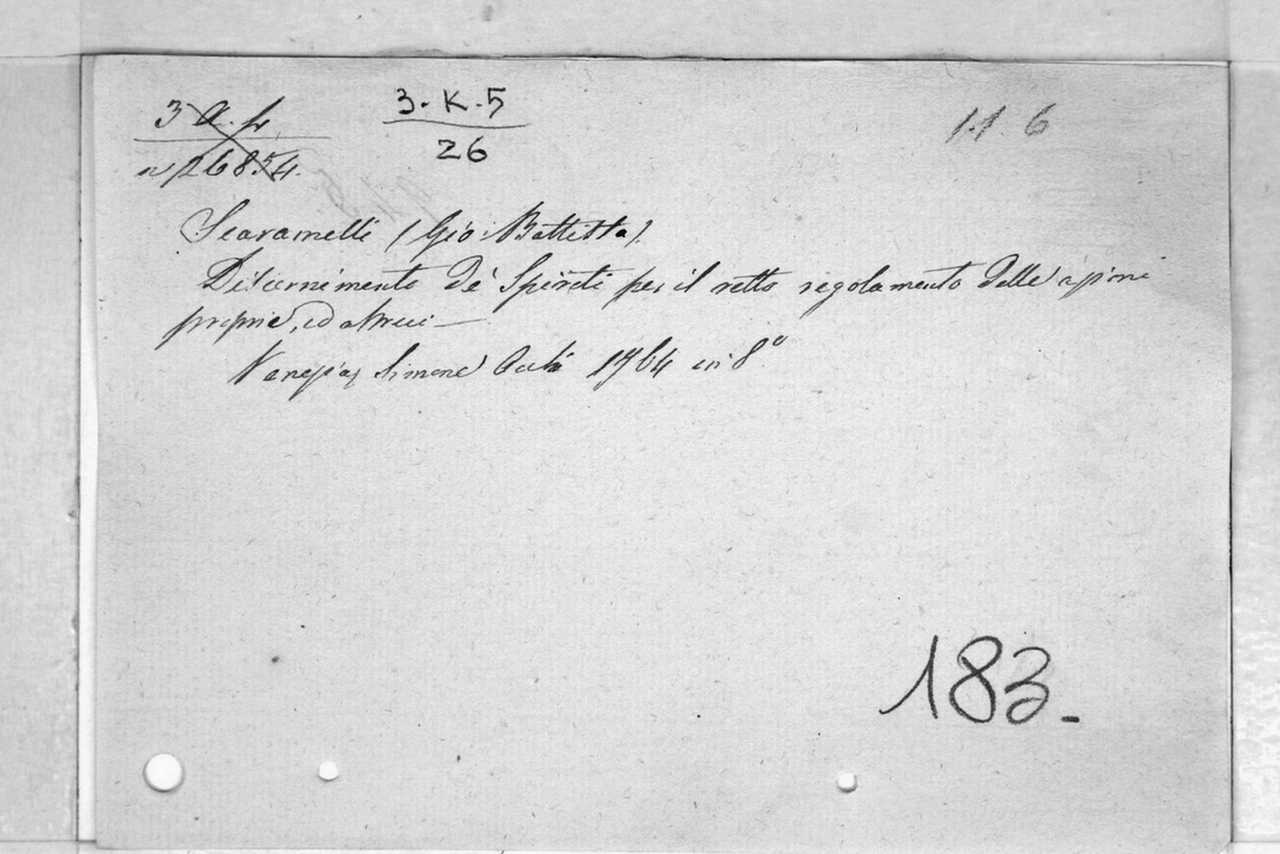 3 a. L. 3. K. 5 1.1 6
n 26854. 26
Scaramelli (Gio: Battista).
Discernimento de' Spiriti per il retto regolamento delle azioni
proprie, ed altrui —
Venezia, Simone Occhi 1764 in 8°
183.